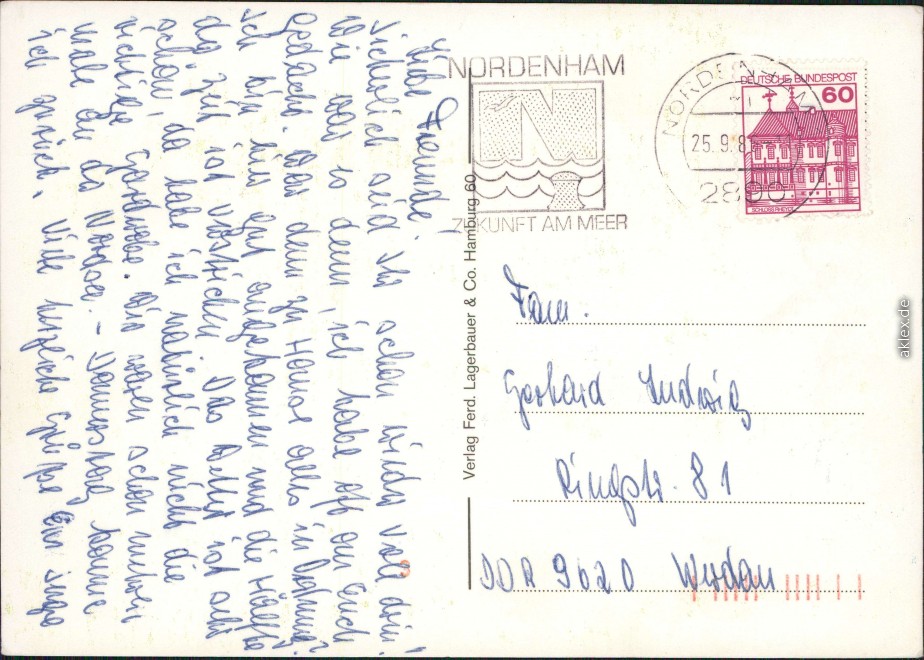 Liebe Freunde,
sicherlich seid Ihr schon wieder voll drin!
Wie war so denn, ich habe oft an Euch
gedacht. War denn zu Hause alles in Ordnung?
Ich bin gut angekommen und die Hälfte
der Zeit ist verstrichen. Das Wetter ist sehr
schön, da habe ich natürlich nicht die
richtige Gardrobe. Wir waren schon mehrere
Male an der Nordsee. – Donnerstag komme
ich zurück. Viele herzliche Grüße Eure Inge
NORDENHAM
N
ZUKUNFT AM MEER
NORDENHAM 1
25.9.8
2890
DEUTSCHE BUNDESPOST
60
SCHLOSS RHEYDT
Verlag Ferd. Lagerbauer & Co. Hamburg 60
Fam.
Gerhard Ludwig
Ringstr. 81
DDR 9620 Werdau
aklex.de